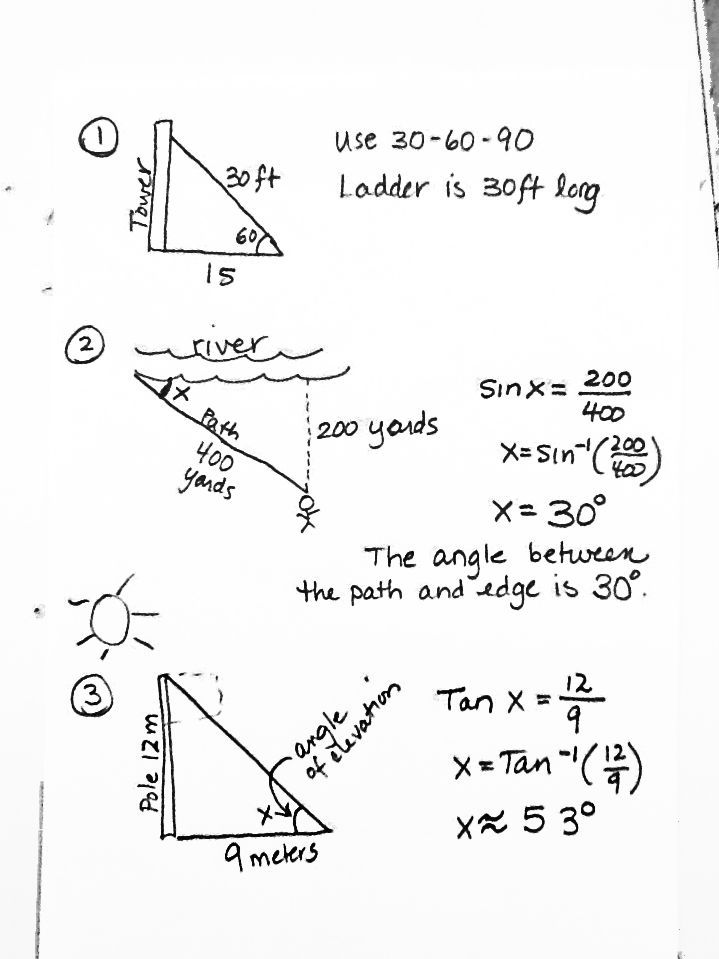 1
Tower
30 ft
60
15
Use 30-60-90
Ladder is 30ft long
2
river
x
Path
400
yards
200 yards
Sin x = 200/400
x = Sin⁻¹(200/400)
x = 30°
The angle between
the path and edge is 30°.
3
Pole 12 m
angle
of elevation
x
9 meters
Tan x = 12/9
x = Tan⁻¹(12/9)
x ≈ 53°